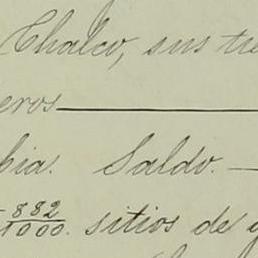 Chalco, sus tie
eros
bia. Saldo.
882/1000. sitios de g